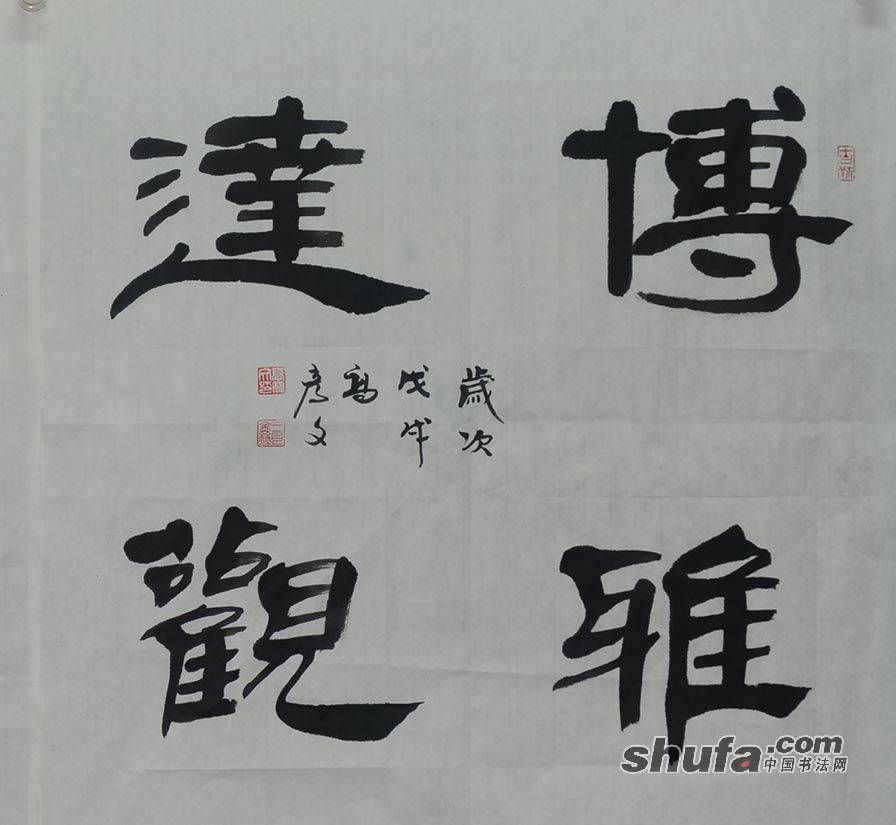 博雅
達觀
歲次
戊戌
高
彥文
shufa.com
中国书法网